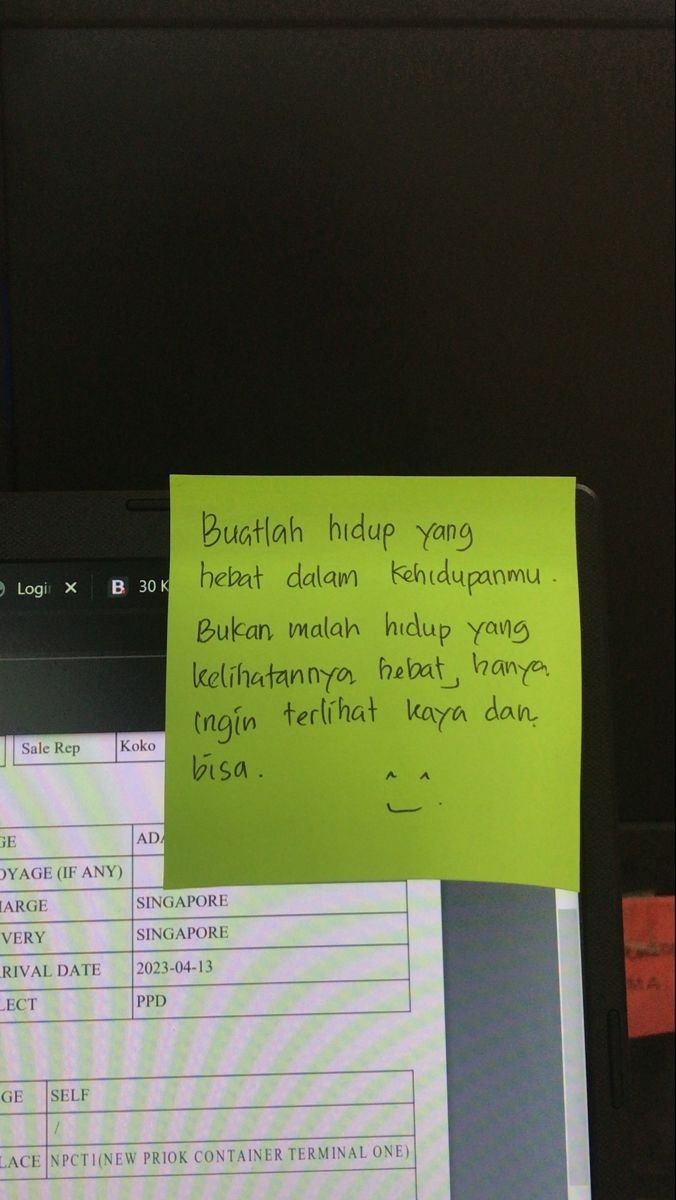 Buatlah hidup yang
hebat dalam kehidupanmu.
Bukan malah hidup yang
kelihatannya hebat, hanya
ingin terlihat kaya dan
bisa.
Logi
B 30 K
Sale Rep Koko
GE ADA
OYAGE (IF ANY)
HARGE SINGAPORE
VERY SINGAPORE
RIVAL DATE 2023-04-13
LECT PPD
GE SELF
/
LACE NPCT1(NEW PRIOK CONTAINER TERMINAL ONE)